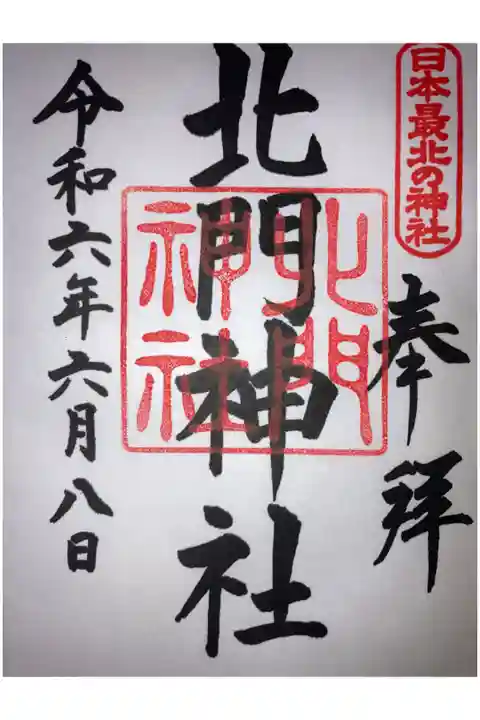 日本最北の神社
奉拝
北門神社
北門
神社
令和六年六月八日